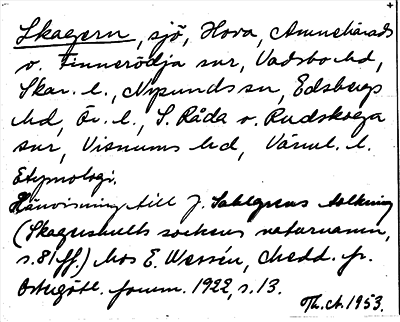 Skagern, sjö, Hova, Amnehärads
o. Finnerödja snr, Vadsbo hd,
Skar. l., Nysunds sn, Edsbergs
hd, Ör. l., S. Råda o. Rudskoga
snr, Visnums hd, Värml. l.
Etymologi.
Hänvisning till J. Sahlgrens tolkning
(Skagershults sockens naturnamn,
s. 81 ff.) hos E. Wessén, Medd. fr.
Östergötl. fornm. 1922, s. 13.
Th. A. 1953.